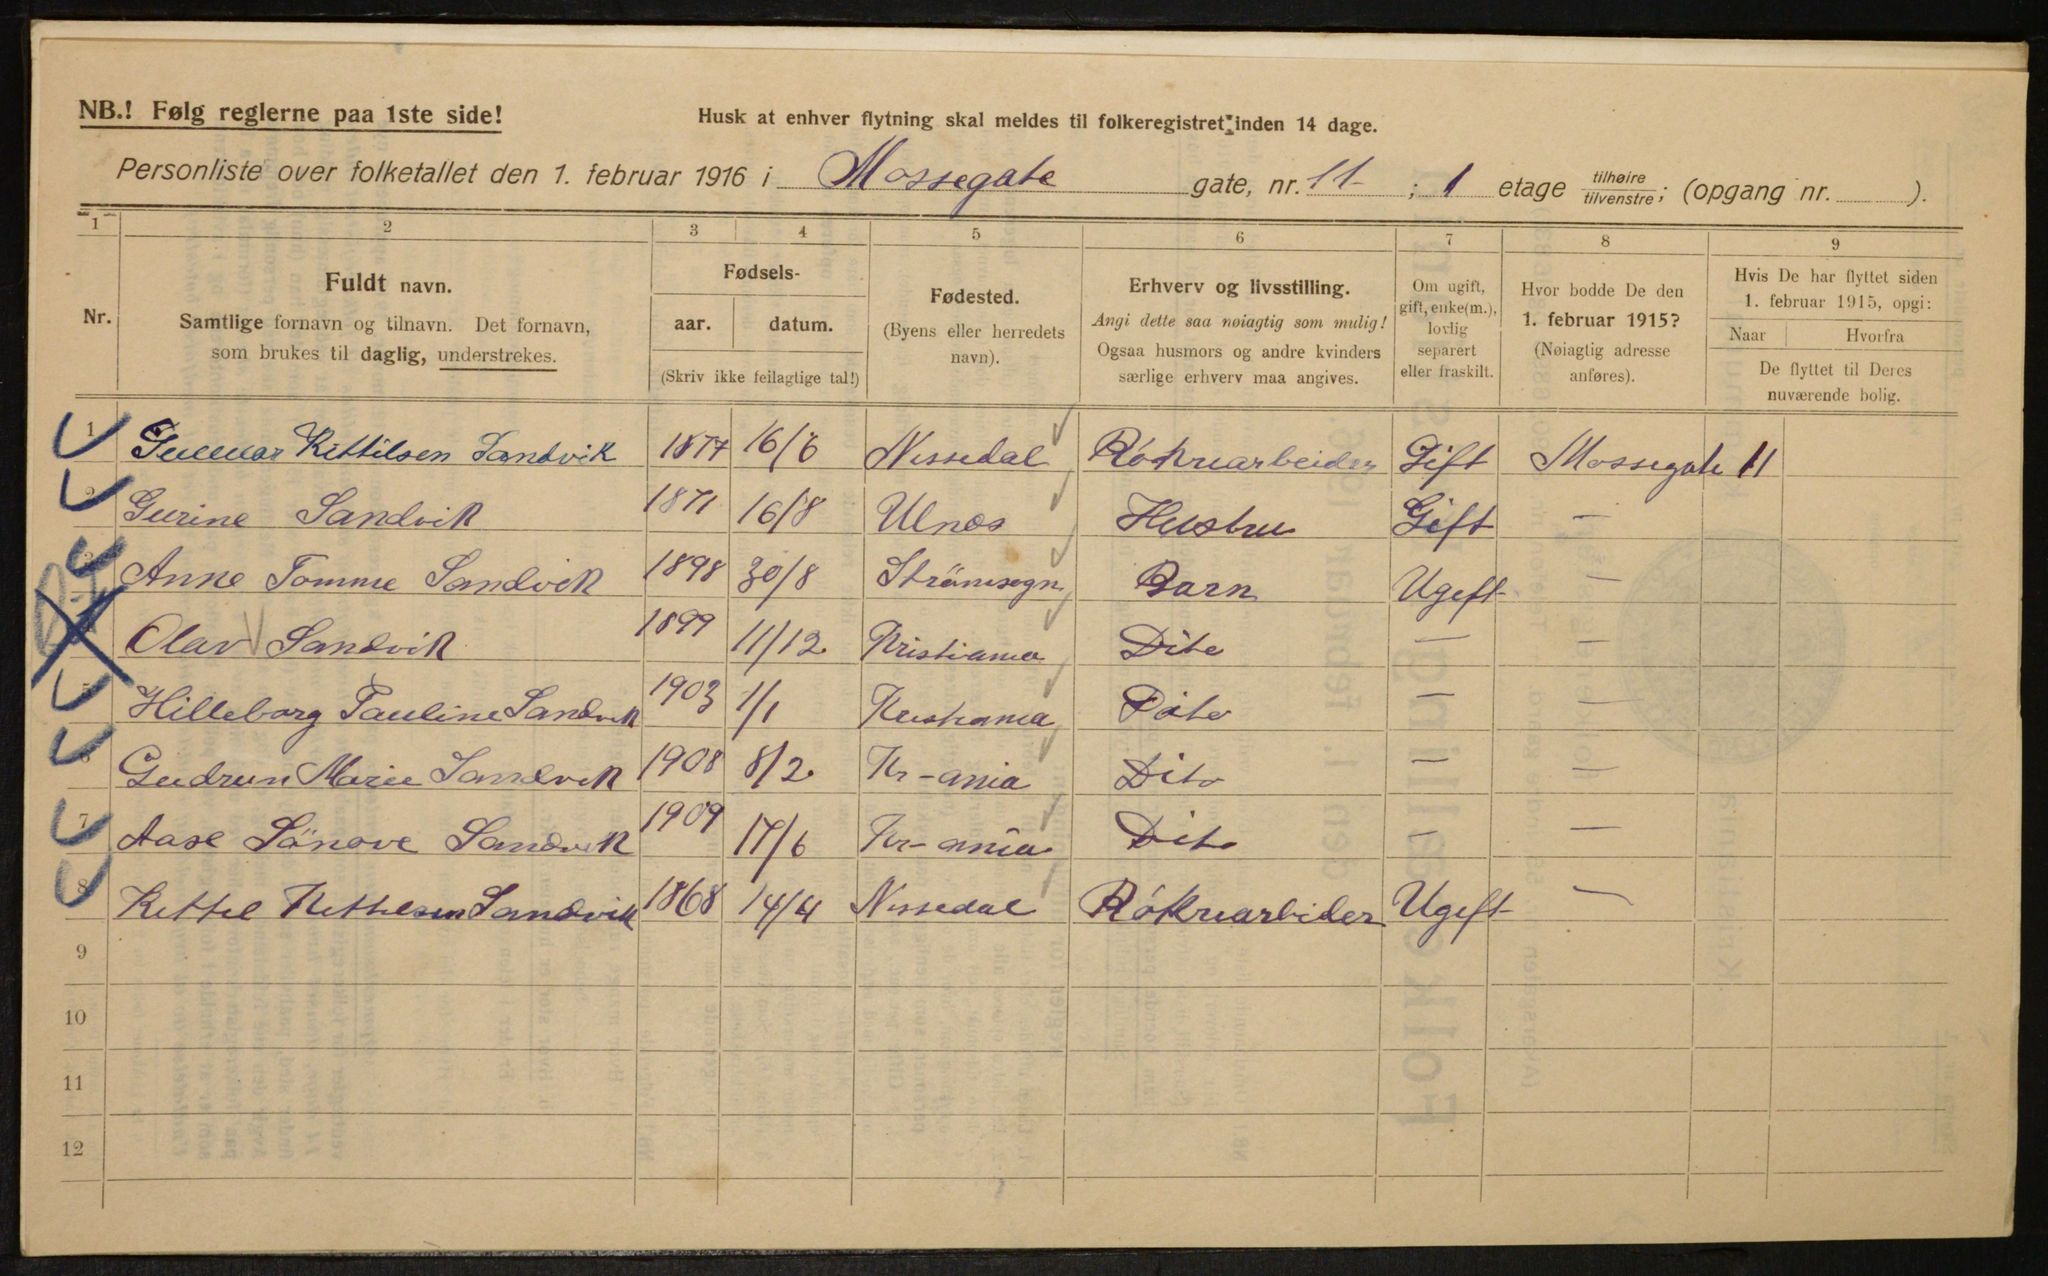 NB.! Følg reglerne paa 1ste side!
Husk at enhver flytning skal meldes til folkeregistret inden 14 dage.
Personliste over folketallet den 1. februar 1916 i Mossegate gate, nr. 11 ; 1 etage tilhøire/tilvenstre; (opgang nr. ).
1 2 3 4 5 6 7 8 9
Nr.
Fuldt navn.
Samtlige fornavn og tilnavn. Det fornavn,
som brukes til daglig, understrekes.
Fødsels-
aar. datum.
(Skriv ikke feilagtige tal!)
Fødested.
(Byens eller herredets
navn).
Erhverv og livsstilling.
Angi dette saa nøiagtig som mulig!
Ogsaa husmors og andre kvinders
særlige erhverv maa angives.
Om ugift,
gift, enke(m.),
lovlig
separert
eller fraskilt.
Hvor bodde De den
1. februar 1915?
(Nøiagtig adresse
anføres).
Hvis De har flyttet siden
1. februar 1915, opgi:
Naar Hvorfra
De flyttet til Deres
nuværende bolig.
1 Gunnar Kittilsen Sandvik 1877 16/6 Nissedal Gift Mossegate 11
2 Gurine Sandvik 1871 16/8 Ulnes Hustru Gift —
3 Anne Tomme Sandvik 1898 30/8 Strömsogn Barn Ugift —
Olav Sandvik 1899 11/12 Kristiania Dito — —
5 Hilleborg Pauline Sandvik 1903 1/1 Kristiania Dito — —
6 Gudrun Marie Sandvik 1908 8/2 Kr-ania Dito — —
7 Aase Sönove Sandvik 1909 17/6 Kr-ania Dito — —
8 Kittel Kittelsen Sandvik 1868 14/4 Nissedal Ugift —
9
10
11
12